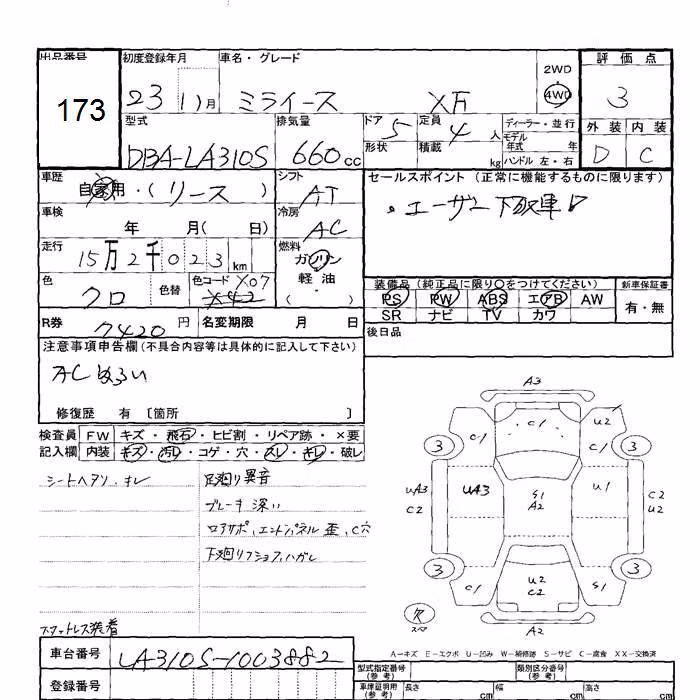 出品番号 初度登録年月 車名・グレード 2WD 評価点
173 23 11月 ミライース XF 4WD 3
型式 排気量 ドア 5 定員 4人 ディーラー・並行 外装 内装
DBA-LA310S 660cc 形状 積載 kg モデル年式 年 ハンドル 左・右 D C
車歴 自家用・(リース) シフト AT セールスポイント(正常に機能するものに限ります)
車検 年 月(日) 冷房 AC ・ユーザー下取車
走行 15万2千023km 燃料 ガソリン 軽・油 ( )
色 クロ 色替 色コード X07 X42 装備品(純正品に限り○をつけてください) 新車保証書
PS PW ABS エアB AW 有・無
SR ナビ TV カワ
R券 7420円 名変期限 月 日 後日品
注意事項申告欄(不具合内容等は具体的に記入して下さい)
ACぬるい
修復歴 有 〔箇所 〕
検査員 FW キズ・飛石・ヒビ割・リペア跡・×要
記入欄 内装 キズ・汚レ・コゲ・穴・スレ・キレ・破レ
シートヘタリ、キレ 足廻り異音
ブレーキ深い
ロアサポ、エンドパネル歪、C穴
下廻り
スマットレス装着
A3
C1 C1 U2
3 C1 3
UA3 C2 UA3 S1 A2 U1 C2 U2
3 C1 U2 C2 S1 3
欠 スペア A2
A－キズ E－エクボ U－凹み W－補修跡 S－サビ C－腐食 XX－交換済
車台番号 LA310S-1003882 型式指定番号(参考) 類別区分番号(参考)
登録番号 車庫証明用(参考) 長さ cm 幅 cm 高さ cm